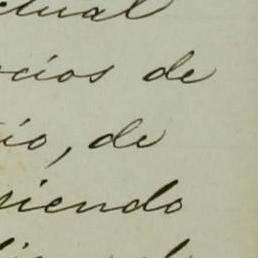 ctual
ocios de
io, de
siendo